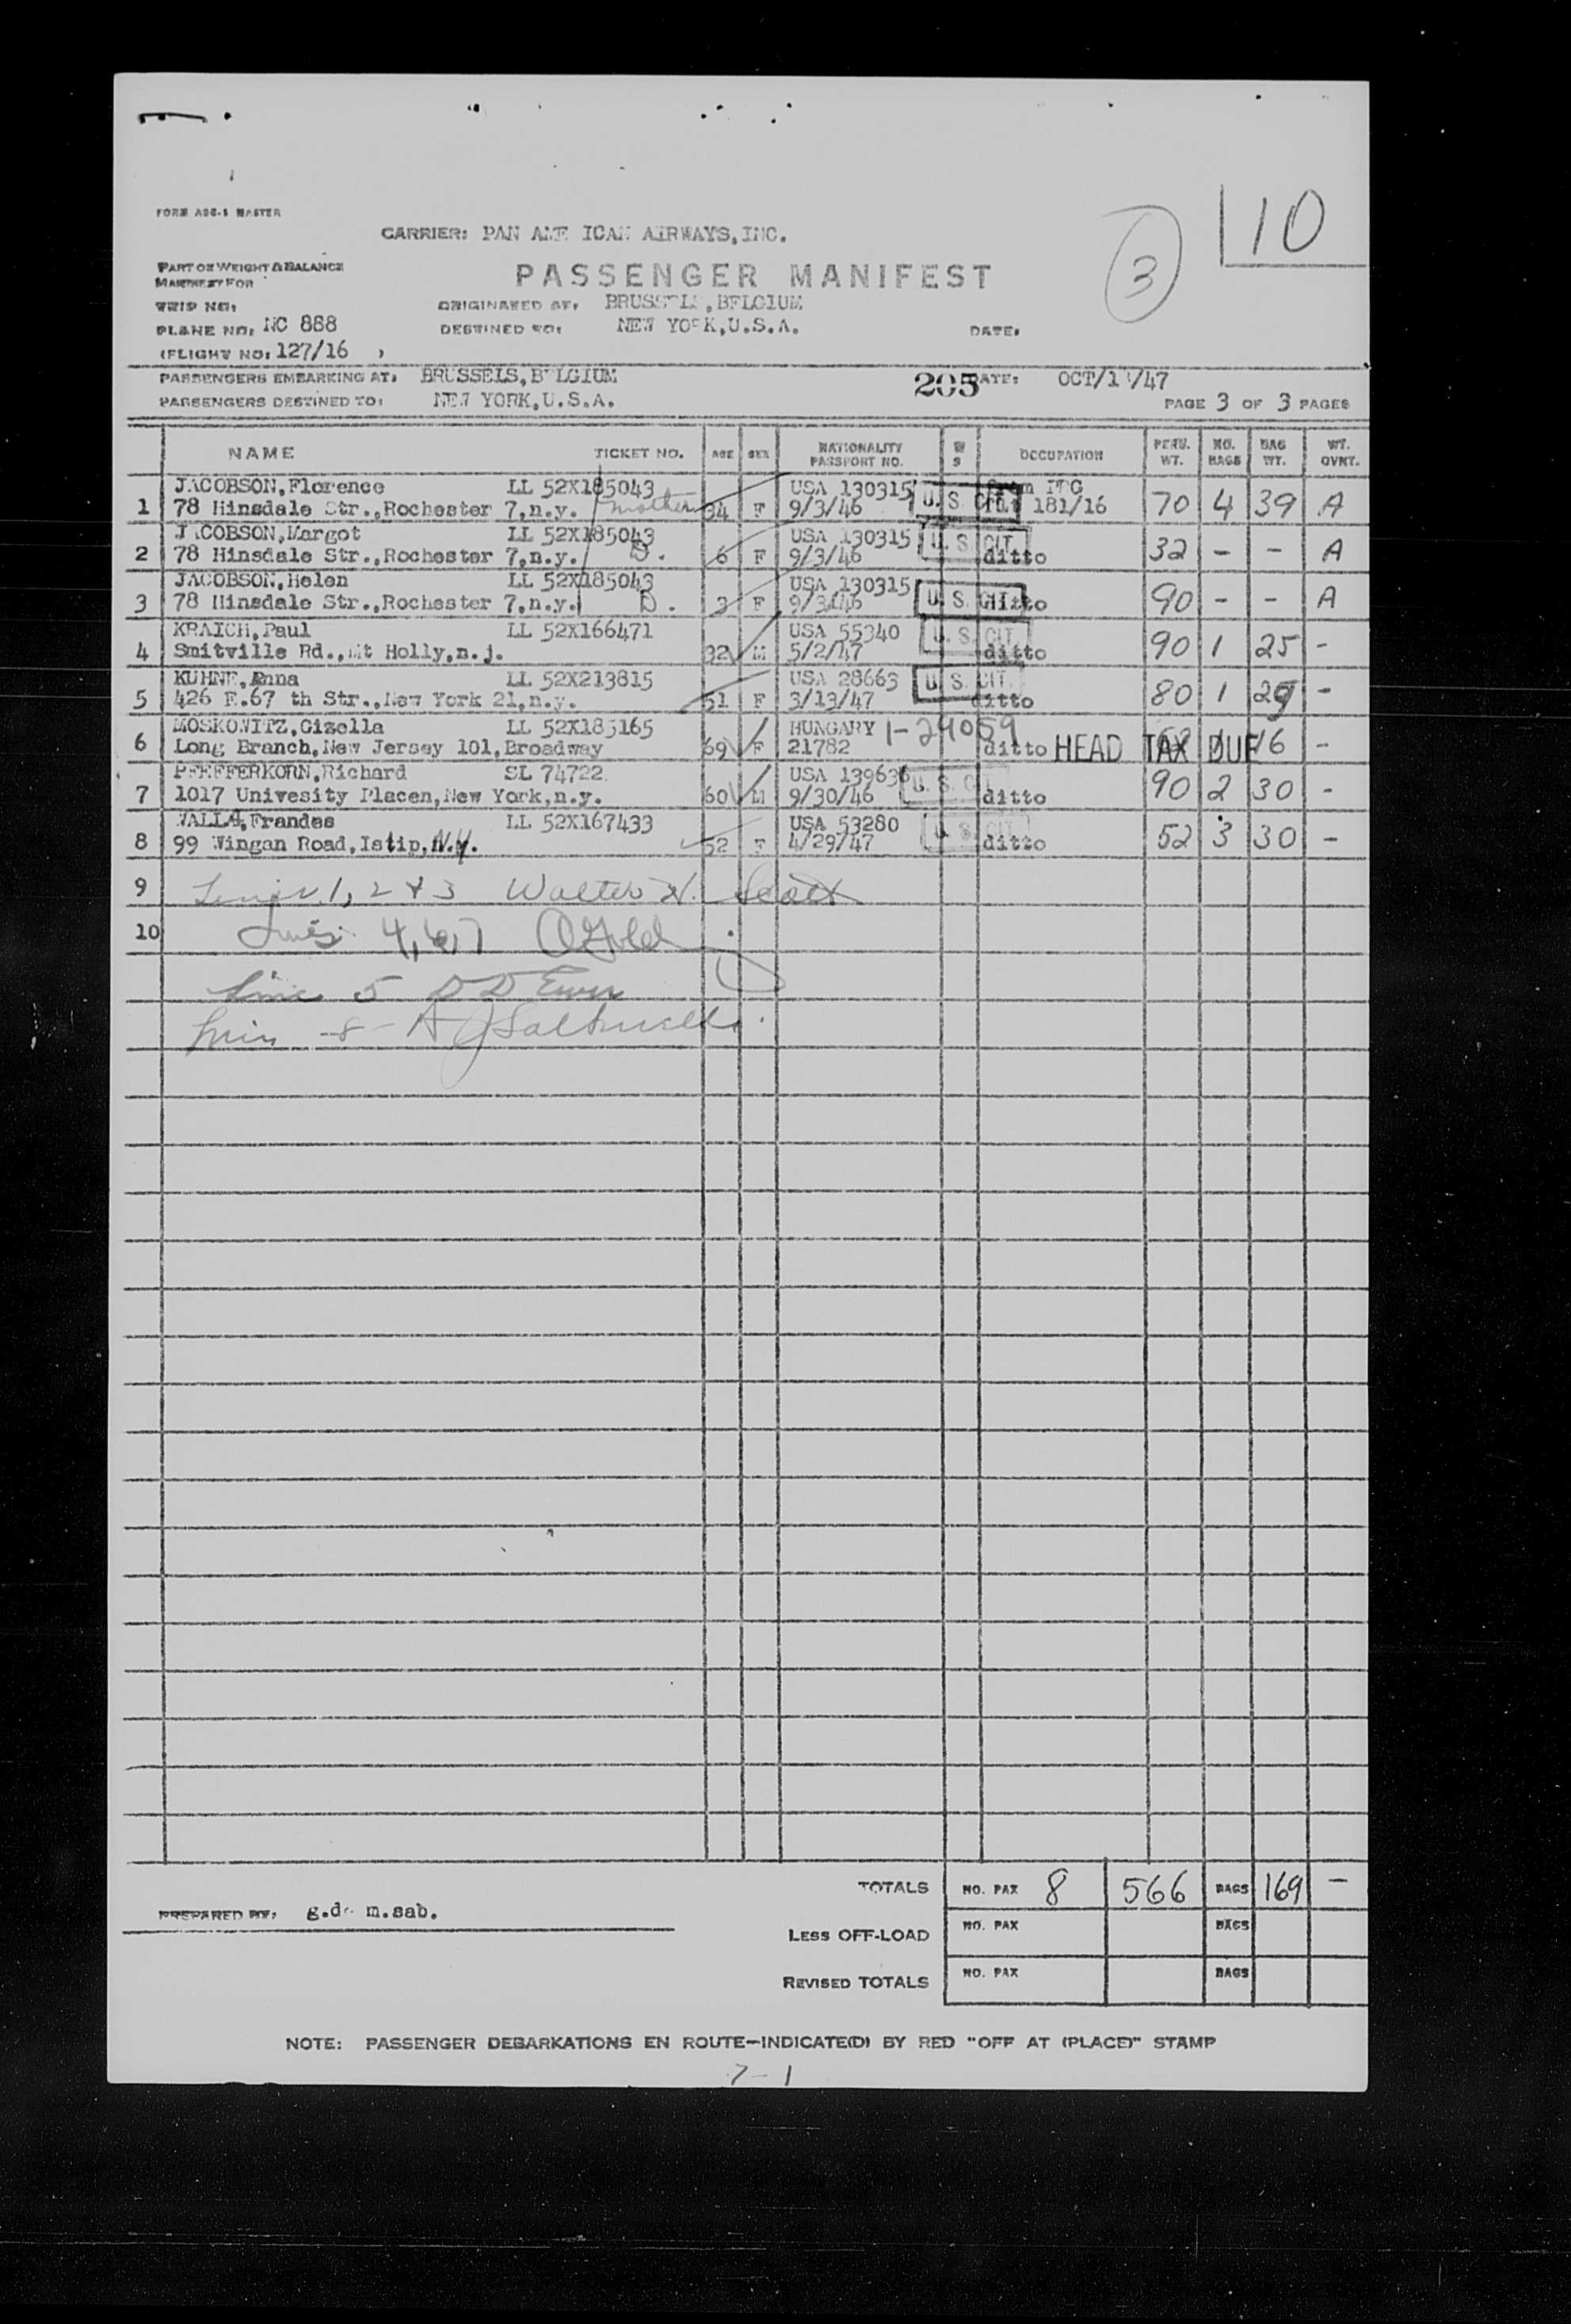 FORM ADC-1 MASTER
10
CARRIER: PAN AME ICAN AIRWAYS, INC.
3
PART OF WEIGHT & BALANCE
MANIFEST FOR
PASSENGER MANIFEST
TRIP NO:
ORIGINATED AT: BRUSSELS, BELGIUM
PLANE NO: NC 888
DESTINED TO: NEW YORK, U.S.A.
DATE:
(FLIGHT NO: 127/16 )
PASSENGERS EMBARKING AT: BRUSSELS, BELGIUM
205
DATE: OCT/1 /47
PASSENGERS DESTINED TO: NEW YORK, U.S.A.
PAGE 3 OF 3 PAGES
NAME TICKET NO. AGE SEX NATIONALITY PASSPORT NO. OCCUPATION PERS. WT. NO. BAGS BAG WT. WT. OVNT.
JACOBSON, Florence LL 52X185043 USA 130315 from
1 78 Hinsdale Str., Rochester 7, n.y. mother 34 F 9/3/46 U.S. CIT. 181/16 70 4 39 A
JACOBSON, Margot LL 52X185043 USA 130315 U.S. CIT.
2 78 Hinsdale Str., Rochester 7, n.y. D. 6 F 9/3/46 ditto 32 - - A
JACOBSON, Helen LL 52X185043 USA 130315
3 78 Hinsdale Str., Rochester 7, n.y. D. 3 F 9/3/46 U.S. CIT. ditto 90 - - A
KRAICH, Paul LL 52X166471 USA 55340 U.S. CIT.
4 Smitville Rd., Mt Holly, n.j. 32 M 5/2/47 ditto 90 1 25 -
KUHNE, Anna LL 52X213815 USA 28663 U.S. CIT.
5 426 E.67 th Str., New York 21, n.y. 51 F 3/13/47 ditto 80 1 29 -
MOSKOWITZ, Gizella LL 52X185165 HUNGARY 1-29059
6 Long Branch, New Jersey 101, Broadway 69 F 21782 ditto HEAD TAX DUE 16 -
PFEFFERKORN, Richard SL 74722 USA 139636 U.S. C
7 1017 Univesity Placen, New York, n.y. 60 M 9/30/46 ditto 90 2 30 -
WALLA, Frandes LL 52X167433 USA 53280 U.S. CIT.
8 99 Wingan Road, Istip, N.Y. 52 F 4/29/47 ditto 52 3 30 -
9 Lines 1, 2 & 3 Walter N. Scott
10 Lines 4, 6, 7
Line 5 D D
Line -8- A J
TOTALS NO. PAX 8 566 BAGS 169 -
PREPARED BY: g.de m.sab.
LESS OFF-LOAD NO. PAX BAGS
REVISED TOTALS NO. PAX BAGS
NOTE: PASSENGER DEBARKATIONS EN ROUTE-INDICATE(D) BY RED "OFF AT (PLACE)" STAMP
7-1